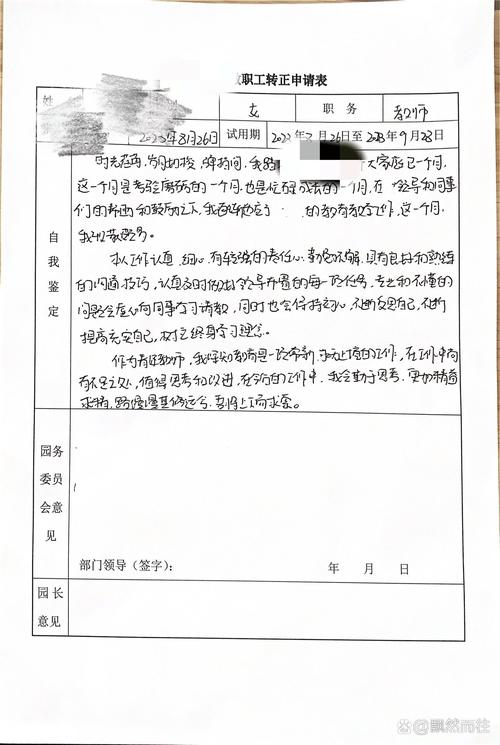 职工转正申请表
姓
女 职务 教师
2023年8月26日 试用期 2023年 月26日至2023年9月28日
时光荏苒,岁月如梭,转瞬间,我 大家庭已一个月,
这一个月是考验磨砺的一个月,也是 的一个月,在 领导和同事
们的帮助和鼓励之下,我 适应了 的教育教学工作,这一个月,
我
自我鉴定
本人工作认真、细心,有较强的责任心, 不懈,具有良好和熟练
的沟通技巧,认真及时做好领导布置的每一项任务,专业和不懂的
问题会虚心向同事学习请教,同时也会保持 心,不断反思自己,不断
提高充实自己,树立终身学习理念。
作为 教师,我深知教育是一项常新、永无止境的工作,在工作中尚
有不足之处,值得思考和改进,在今后的工作中,我会勤于思考,更加精益
求精,路漫漫其修远兮,吾将上下而求索。
园务委员会意见
部门领导(签字): 年 月 日
园长意见
百家号/飘然而往